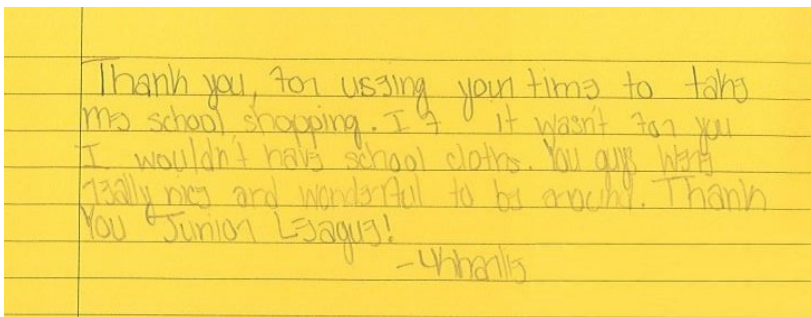 Thank you, for useing your time to take
me school shopping. If it wasn't for you
I wouldn't have school cloths. You guys were
really nice and wonderful to be around. Thank
You Junior League!